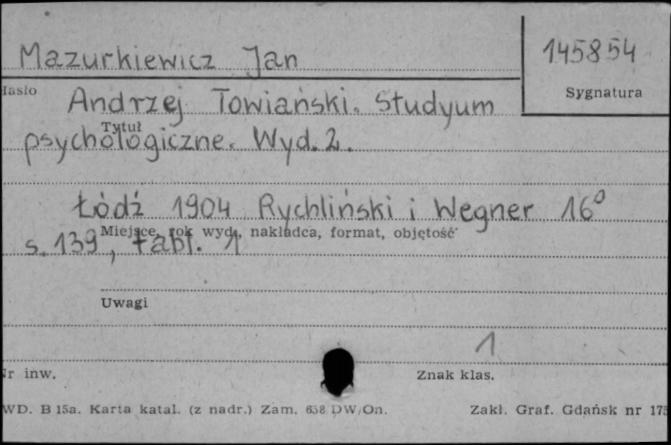 Mazurkiewicz Jan
145854
Hasło
Sygnatura
Andrzej Towiański. Studyum
Tytuł
psychologiczne. Wyd. 2.
Łódź 1904 Rychliński i Wegner 16°
Miejsce, rok wyd., nakładca, format, objętość
s. 139, tabl. 1
Uwagi
1
Nr inw.
Znak klas.
WD. B 15a. Karta katal. (z nadr.) Zam. 658 DW/On.
Zakł. Graf. Gdańsk nr 175